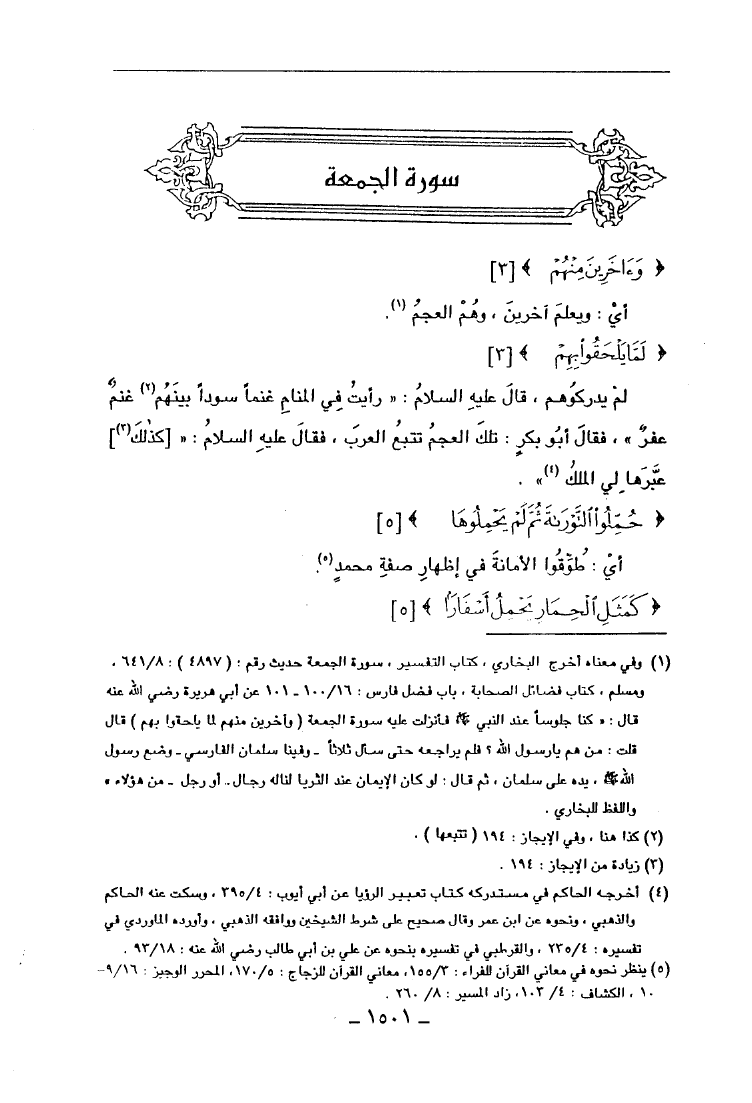 سورة الجمعة
﴿ وَءَاخَرِينَ مِنْهُمْ ﴾ [٣]
أيْ : ويعلمَ آخرينَ ، وهُمْ العجمُ (١).
﴿ لَمَّا يَلْحَقُوا۟ بِهِمْ ﴾ [٣]
لمْ يدركُوهم ، قالَ عليهِ السلامُ : « رأيتُ فِي المنامِ غنماً سوداً بينَهُم(٢) غنمٌ
عفرٌ » ، فقالَ أبُو بكرٍ : تلكَ العجمُ تتبعُ العربَ ، فقالَ عليهِ السلامُ : « [كذلكَ(٣)]
عبَّرَها لِي الملكُ (٤)» .
﴿ حُمِّلُوا۟ ٱلتَّوْرَىٰةَ ثُمَّ لَمْ يَحْمِلُوهَا ﴾ [٥]
أيْ : طُوِّقُوا الأمانةَ في إظهارِ صفةِ محمدٍ(٥).
﴿ كَمَثَلِ ٱلْحِمَارِ يَحْمِلُ أَسْفَارًۢا ﴾ [٥]
(١) وفي معناه أخرج البخاري ، كتاب التفسير ، سورة الجمعة حديث رقم : ( ٤٨٩٧ ) : ٦٤١/٨ ،
ومسلم ، كتاب فضائل الصحابة ، باب فضل فارس : ١٠٠/١٦ ـ ١٠١ عن أبي هريرة رضي الله عنه
قال : « كنا جلوساً عند النبي ﷺ فأنزلت عليه سورة الجمعة ( وآخرين منهم لما يلحقوا بهم ) قال
قلت : من هم يارسول الله ؟ فلم يراجعه حتى سأل ثلاثاً ـ وفينا سلمان الفارسي ـ وضع رسول
الله ﷺ ، يده على سلمان ، ثم قال : لو كان الإيمان عند الثريا لناله رجال.. أو رجل ـ من هؤلاء »
واللفظ للبخاري .
(٢) كذا هنا ، وفي الإيجاز : ١٩٤ ( تتبعها ) .
(٣) زيادة من الإيجاز : ١٩٤ .
(٤) أخرجه الحاكم في مستدركه كتاب تعبير الرؤيا عن أبي أيوب : ٣٩٥/٤ ، وسكت عنه الحاكم
والذهبي ، ونحوه عن ابن عمر وقال صحيح على شرط الشيخين ووافقه الذهبي ، وأورده الماوردي في
تفسيره : ٢٣٥/٤ ، والقرطبي في تفسيره بنحوه عن علي بن أبي طالب رضي الله عنه : ٩٣/١٨ .
(٥) ينظر نحوه في معاني القرآن للفراء : ١٥٥/٣، معاني القرآن للزجاج : ١٧٠/٥، المحرر الوجيز : ٩/١٦-
١٠ ، الكشاف : ٤/ ١٠٣، زاد المسير : ٨/ ٢٦٠ .
ـ ١٥٠١ ـ